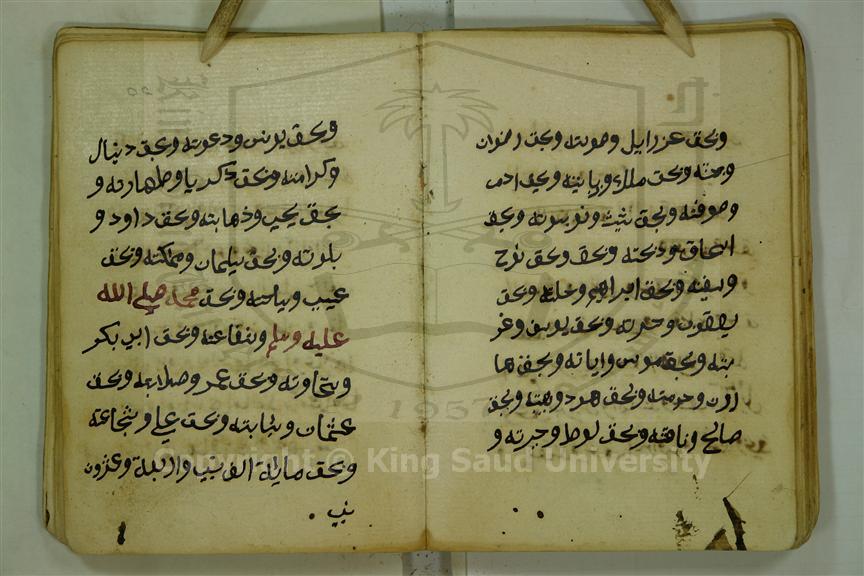 وبحق عزرايل وصوته وبحق رضوان
وجنته وبحق ملك وربانيته وبحق ادم
وصوفته وبحق شيث ونوبوته وبحق
اسحاق وذبحته وبحق وبحق نوح
وسفينته وبحق ابراهيم وخلته وبحق
يعقوب وحزنه وبحق يوسف وغر
بته وبحق موسى واياته وبحق ها
رون وحرمته وبحق هود وهيبته وبحق
صالح وناقته وبحق لوط وجيرته و
وبحق يونس ودعوته وبحق دنيال
وكرامته وبحق زكريا وطهارته و
بحق يحيى وذهابته وبحق داود و
بلوته وبحق سليمان ومملكته وبحق
عيسى وسياحته وبحق محمد صلى الله
عليه وسلم وشفاعته وبحق ابي بكر
وسخاوته وبحق عمر وصلابته وبحق
عثمان وبحق علي وشجاعة
وبحق ماية الف نبي واربعة وعشرون
نبي
Copyright © King Saud University
1957